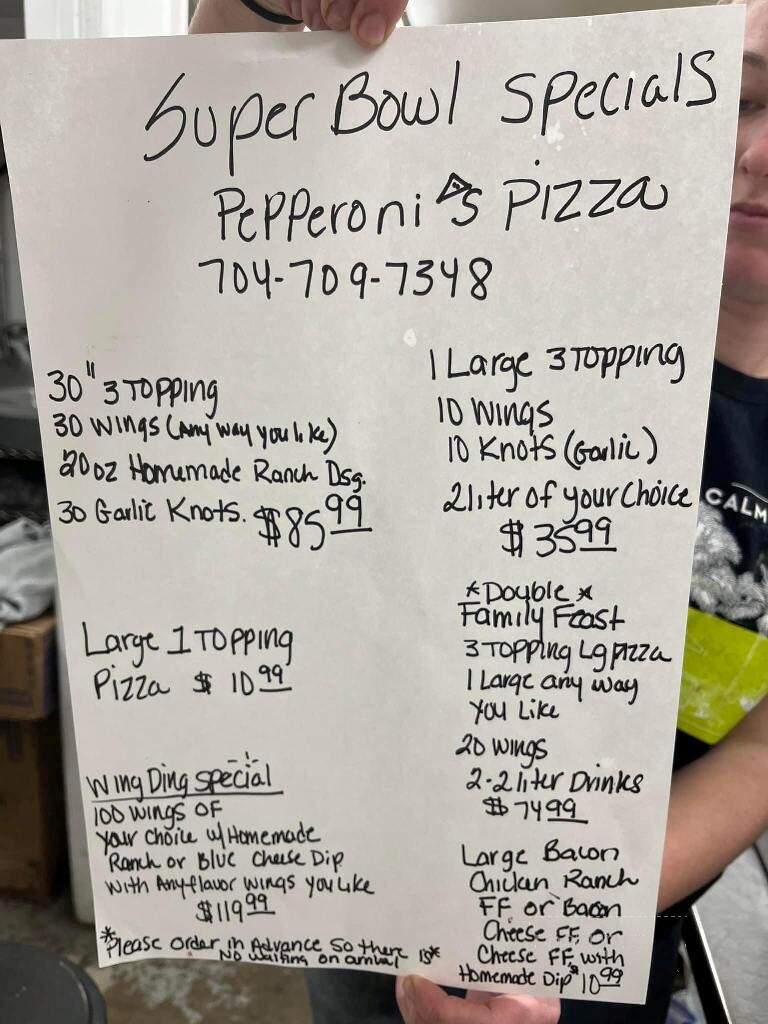 Super Bowl Specials
Pepperoni's Pizza
704-709-7348
30" 3 Topping
30 Wings (Any way you like)
20oz Homemade Ranch Dsg.
30 Garlic Knots. $85.99
Large 1 Topping
Pizza $10.99
Wing Ding Special
100 Wings of
Your choice w/ Homemade
Ranch or Blue Cheese Dip
with Any flavor wings you like
$119.99
*Please order in Advance so there is*
No waiting on arrival
1 Large 3 Topping
10 Wings
10 Knots (Garlic)
2 liter of your choice
$35.99
*Double*
Family Feast
3 Topping Lg pizza
1 Large any way
you Like
20 wings
2-2 liter Drinks
$74.99
Large Bacon
Chicken Ranch
FF or Bacon
Cheese FF, or
Cheese FF, with
Homemade Dip $10.99
CALM